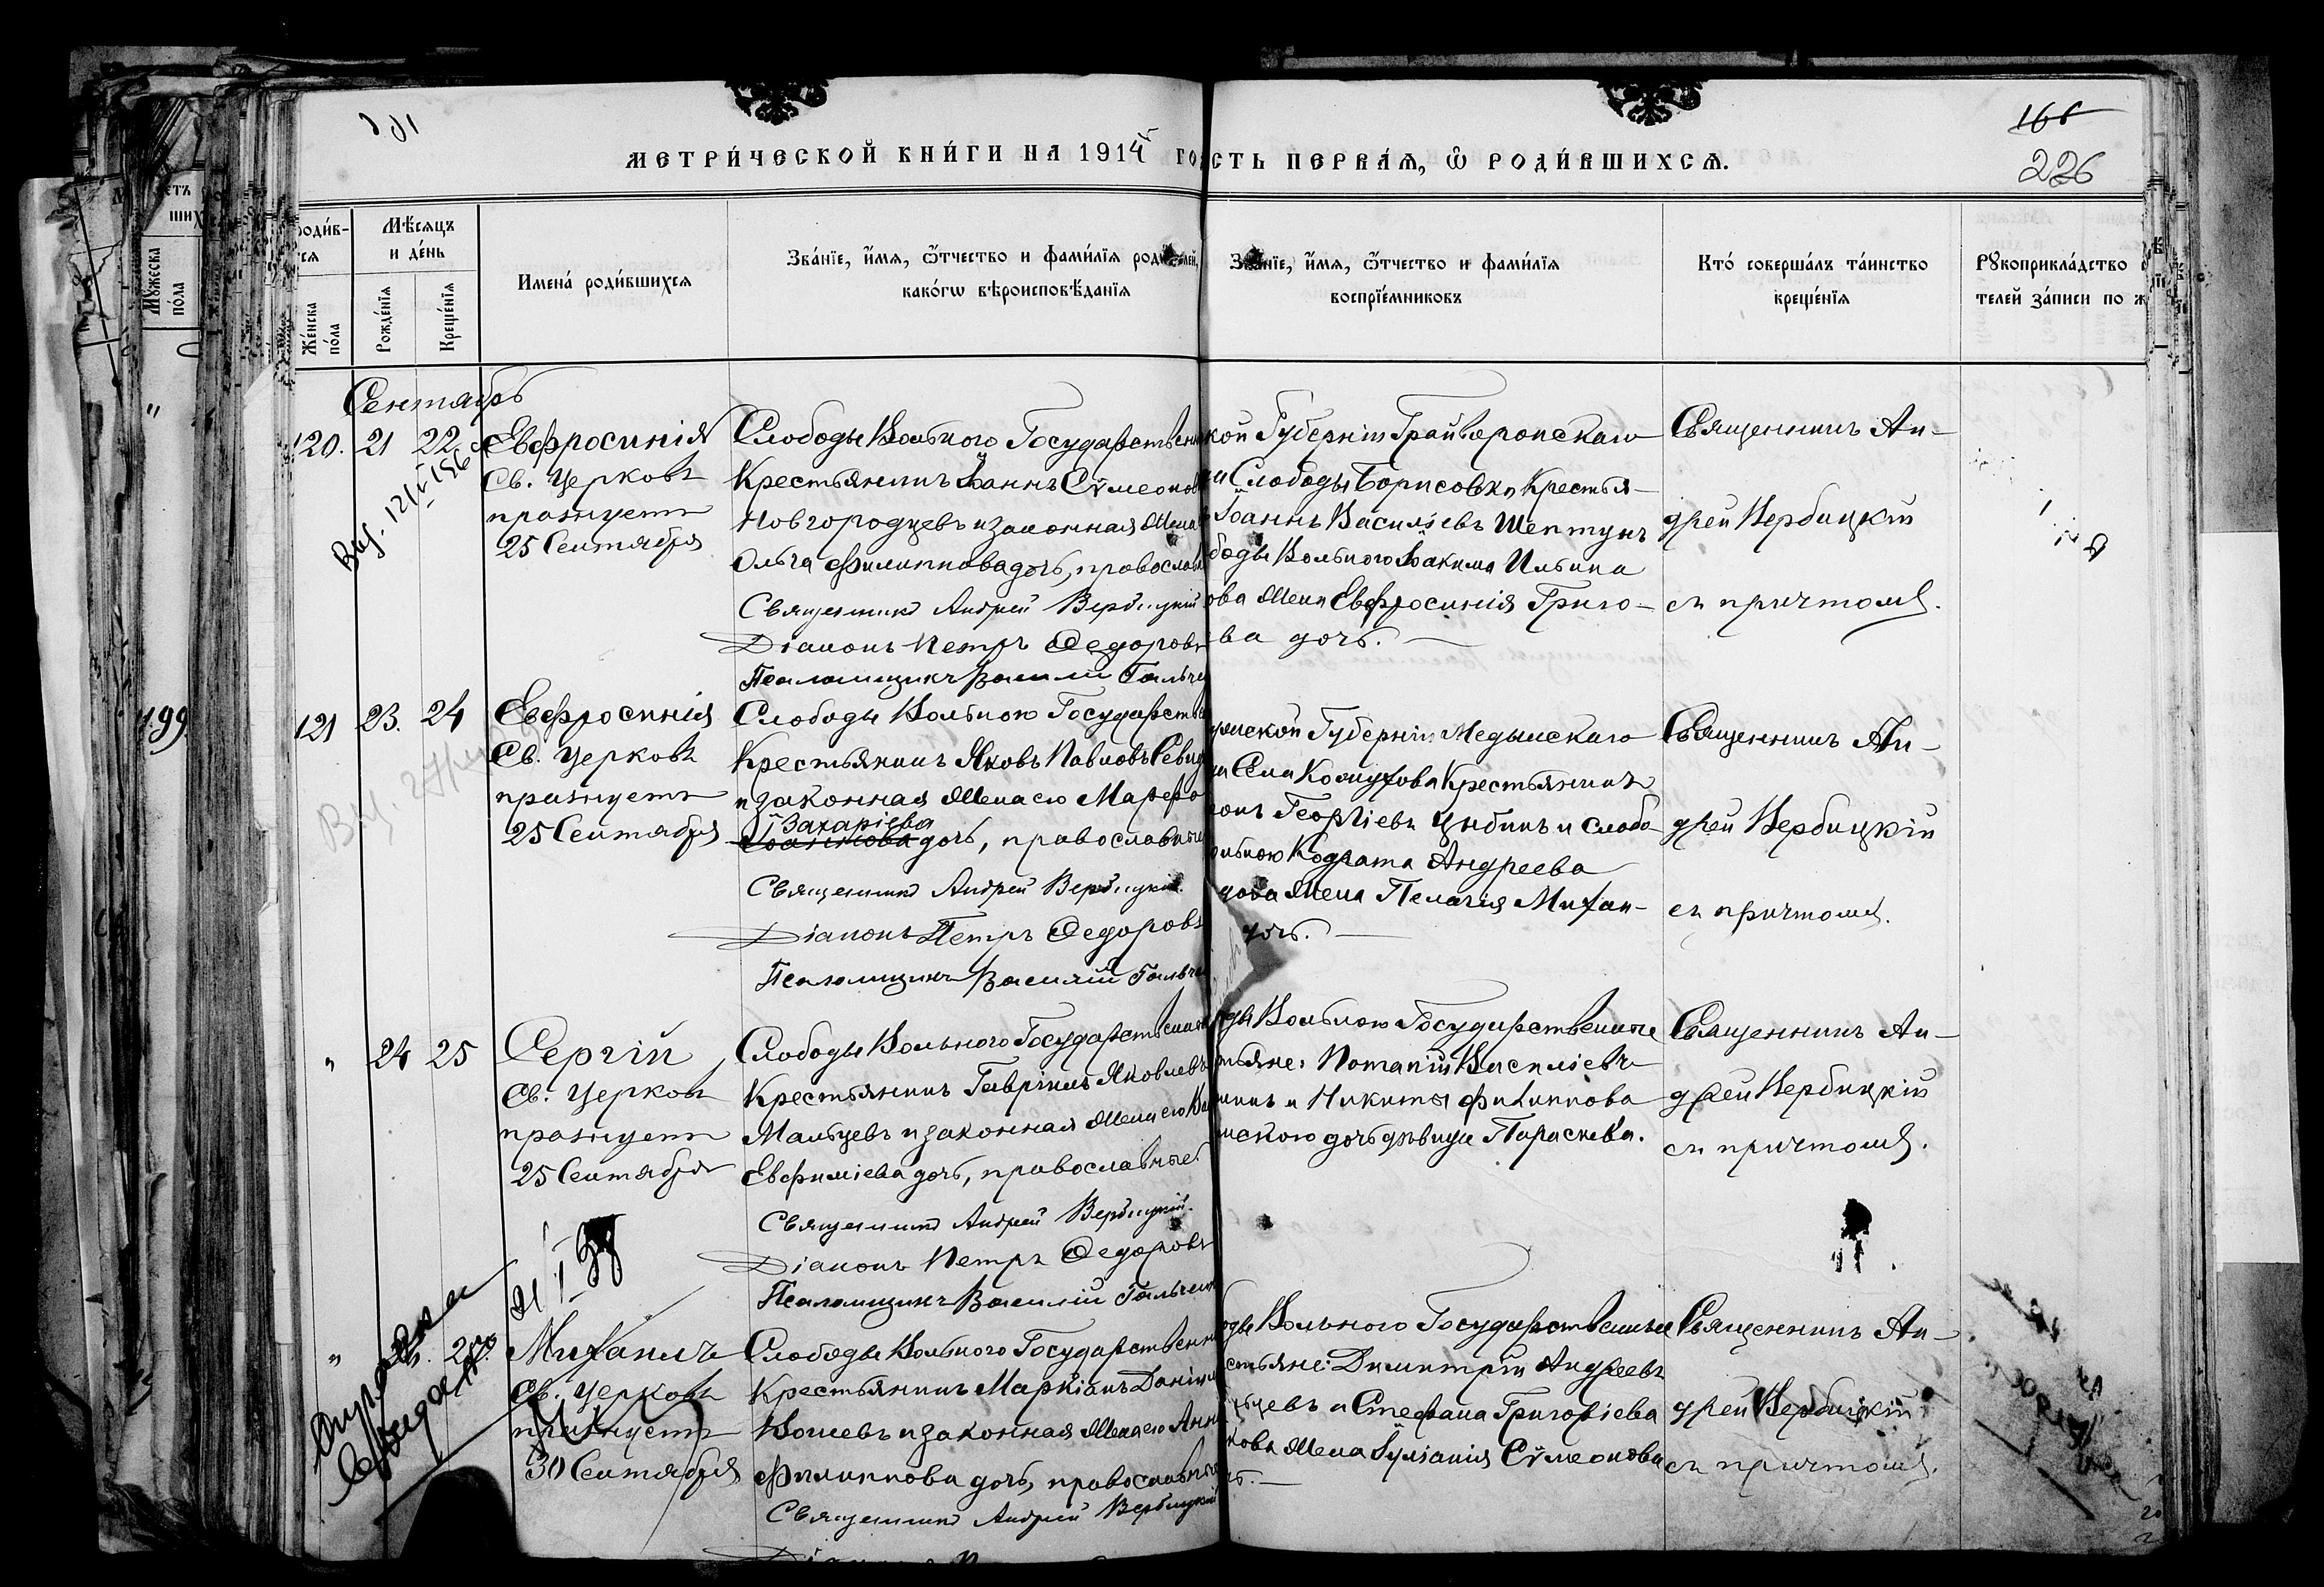 166
226
МЕТРИ́ЧЕСКОЙ КНИ́ГИ НА 1914 ГО
СТЬ ПЕРВА́Я, Ѡ РОДИ́ВШИХСЯ.
Же́нска по́ла
Мѣ́сяцъ и де́нь
Рожде́нїя
Креще́нїя
Имена́ роди́вшихся
Зва́нїе, и́мя, ѻ́тчество и фами́лїя
како́гѡ вѣроисповѣ́данїя
Зва́нїе, и́мя, ѻ́тчество и фами́лїя
воспрїе́мниковъ
Кто́ соверша́лъ та́инство
креще́нїя
Рꙋкоприкла́дство
телей за́писи по
Му́жеска по́ла
Сентябрь
120. 21 22 Евфросинія
Св. Церковь
празнуетъ
25 Сентября
Слободы Вольного Государствен
Крестьянинъ Іоаннъ Сѵмеонов
Новгородцевъ и законная Жена
Ольга Филиппова дочь, православ
Священникъ Андрей Вербицкій
Діаконъ Петръ Федоровъ
Псаломщикъ Василій Гальче
кой Губерніи Грайворонскаго
Слободы Борисовки Крестья-
Іоаннъ Василіевъ Шептунъ
боды Вольного Іоакима Ильина
ова Жена Евфросинія Григо-
ва дочь.
Священникъ Ан-
дрей Вербицкій
съ причтомъ.
199
121 23. 24 Евфросинія
Св. Церковь
празнуетъ
25 Сентября
Слободы Вольною Государстве
Крестьянинъ Яковъ Павловъ
и законная Жена его Марфа
Захаріева
дочь, православные
Священникъ Андрей Вербицкій.
Діаконъ Петръ Федоровъ
Псаломщикъ Василій Гальче
ужской Губерніи Медынскаго
Села Крестьянинъ
Георгіевъ Цыбинъ и слобо-
ольною Кодрата Андреева
Жена Пелагія Михаи-
дочь.
Священникъ Ан-
дрей Вербицкій
съ причтомъ.
" 24 25 Сергій
Св. Церковь
празнуетъ
25 Сентября
Слободы Вольного Государственн
Крестьянинъ Гавріилъ Яковлевъ
Мальцевъ и законная Жена его
Евфиміева дочь, православные
Священникъ Андрей Вербицкій.
Діаконъ Петръ Федоровъ
Псаломщикъ Василій Гальчен
ды Вольною Государственные
тьяне: Потапій Василіевъ
и Никиты Филиппова
дочь дѣвица Параскева.
Священникъ Ан-
дрей Вербицкій
съ причтомъ.
" Михаилъ
Св. Церковь
празнуетъ
30 Сентября
Слободы Вольного Государственн
Крестьянинъ Маркіанъ Даніи
Кошевъ и законная Жена его Анн
Филиппова дочь, православные
Священникъ Андрей Вербицкій
оды Вольного Государственные
стьяне: Димитрій Андреевъ
цевъ и Стефана Григоріева
кова Жена Іуліанія Сѵмеонова
Священникъ Ан-
дрей Вербицкій
съ причтомъ.